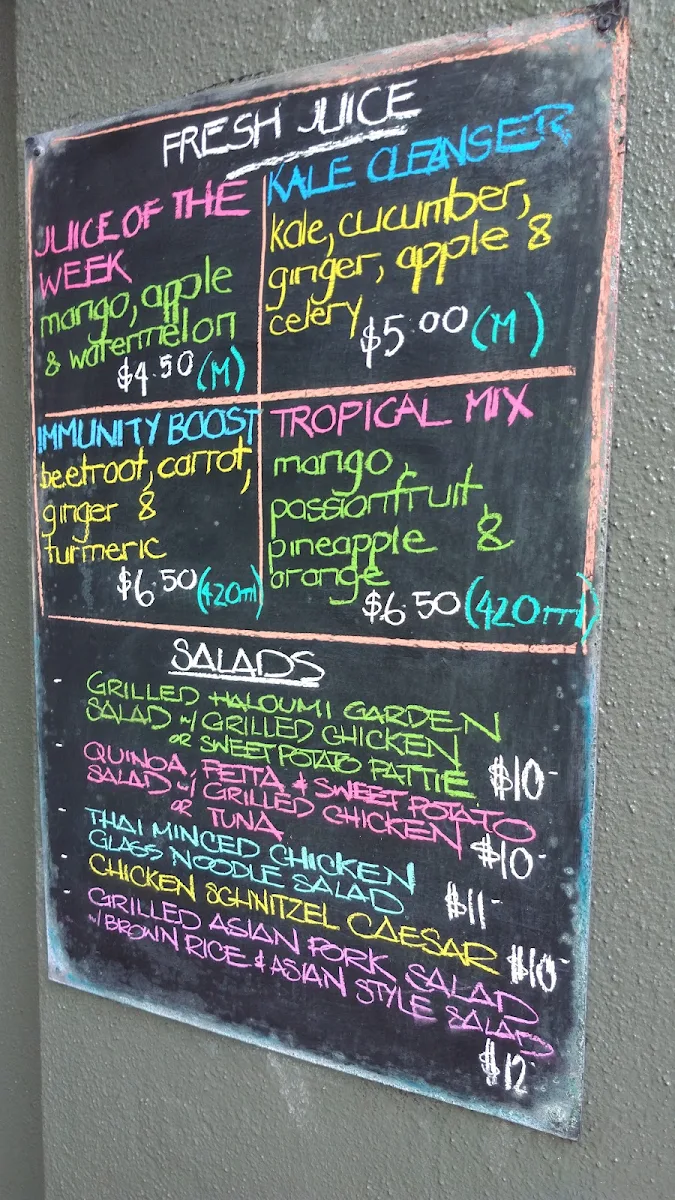 FRESH JUICE
JUICE OF THE
WEEK
mango, apple
& watermelon
$4.50 (M)
KALE CLEANSER
kale, cucumber,
ginger, apple &
celery
$5.00 (M)
IMMUNITY BOOST
beetroot, carrot,
ginger &
turmeric
$6.50 (420ml)
TROPICAL MIX
mango,
passionfruit,
pineapple &
orange
$6.50 (420ml)
SALADS
- GRILLED HALOUMI GARDEN
SALAD w/ GRILLED CHICKEN
or SWEET POTATO PATTIE $10-
- QUINOA, FETTA & SWEET POTATO
SALAD w/ GRILLED CHICKEN
or TUNA $10-
- THAI MINCED CHICKEN
GLASS NOODLE SALAD $11-
- CHICKEN SCHNITZEL CAESAR $10-
- GRILLED ASIAN PORK SALAD
w/ BROWN RICE & ASIAN STYLE SALAD
$12-